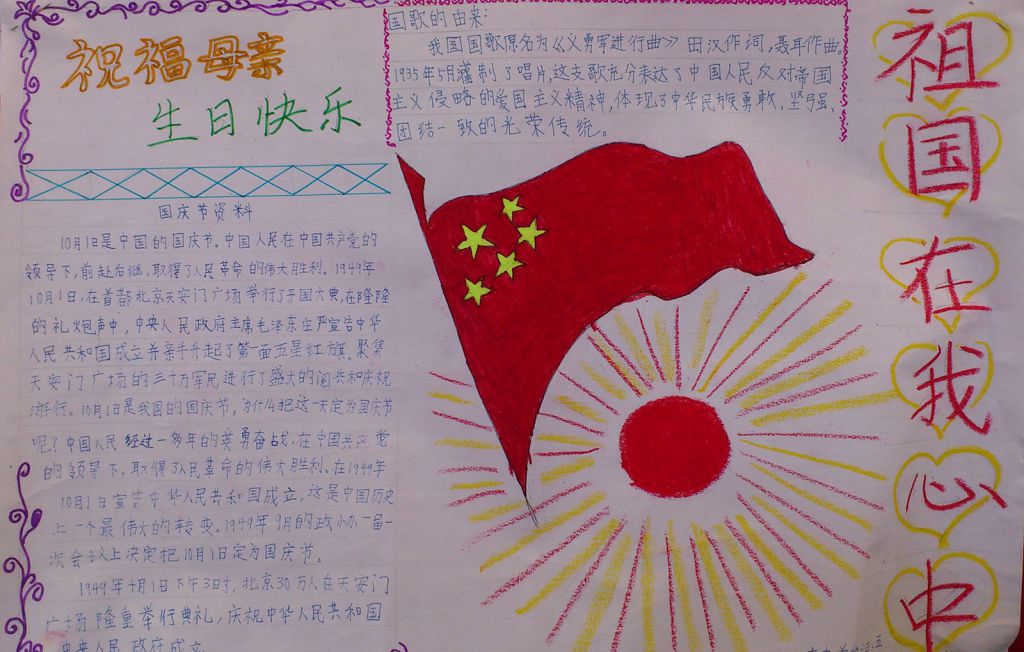 祝福母亲
生日快乐
国歌的由来:
我国国歌原名为《义勇军进行曲》田汉作词,聂耳作曲。
1935年5月灌制了唱片,这支歌充分表达了中国人民反对帝国
主义侵略的爱国主义精神,体现了中华民族勇敢、坚强、
团结一致的光荣传统。
国庆节资料
10月1日是中国的国庆节。中国人民在中国共产党的
领导下,前赴后继,取得了人民革命的伟大胜利。1949年
10月1日,在首都北京天安门广场举行了开国大典,在隆隆
的礼炮声中,中央人民政府主席毛泽东庄严宣告中华
人民共和国成立并亲手升起了第一面五星红旗。聚集
天安门广场的三十万军民进行了盛大的阅兵和庆祝
游行。10月1日是我国的国庆节,为什么把这一天定为国庆节
呢?中国人民经过一多年的英勇奋战,在中国共产党
的领导下,取得了人民革命的伟大胜利。在1949年
10月1日宣告中华人民共和国成立,这是中国历史
上一个最伟大的转变。1949年9月的政协一届一
次会议上决定把10月1日定为国庆节。
1949年十月1日下午3时,北京30万人在天安门
广场隆重举行典礼,庆祝中华人民共和国
中央人民政府成立
祖国在我心中